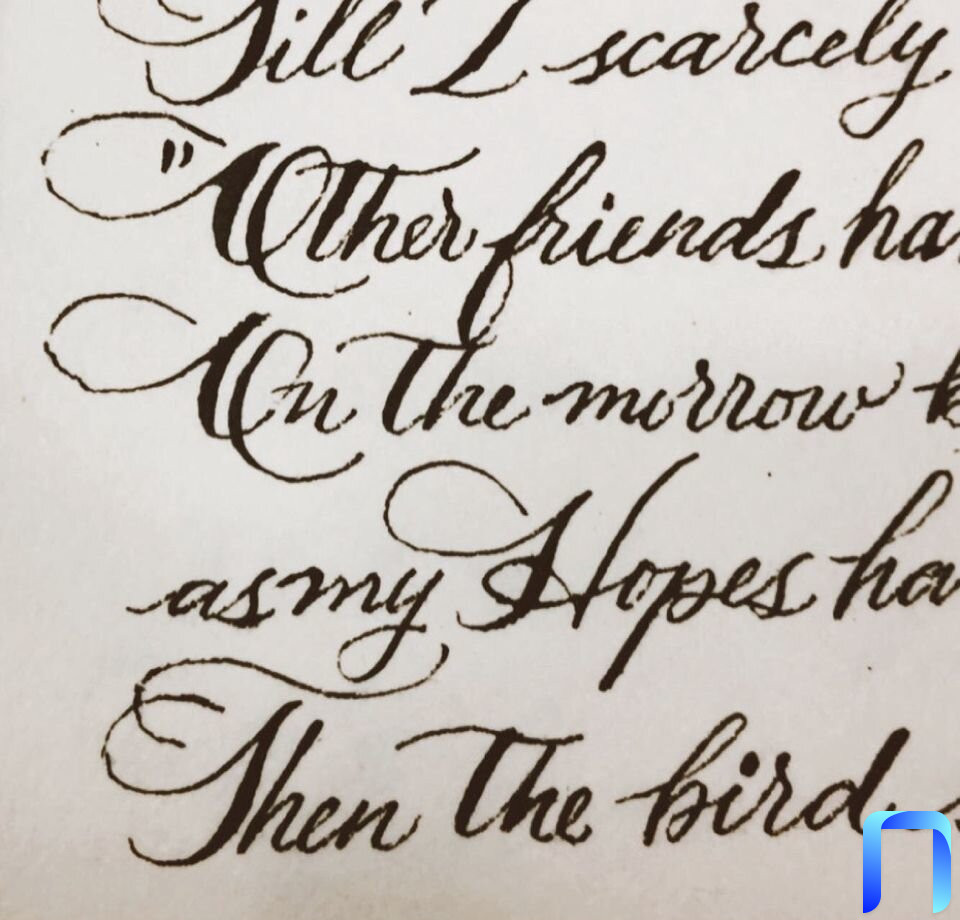 Till I scarcely
"Other friends ha
On the morrow
as my Hopes ha
Then the bird